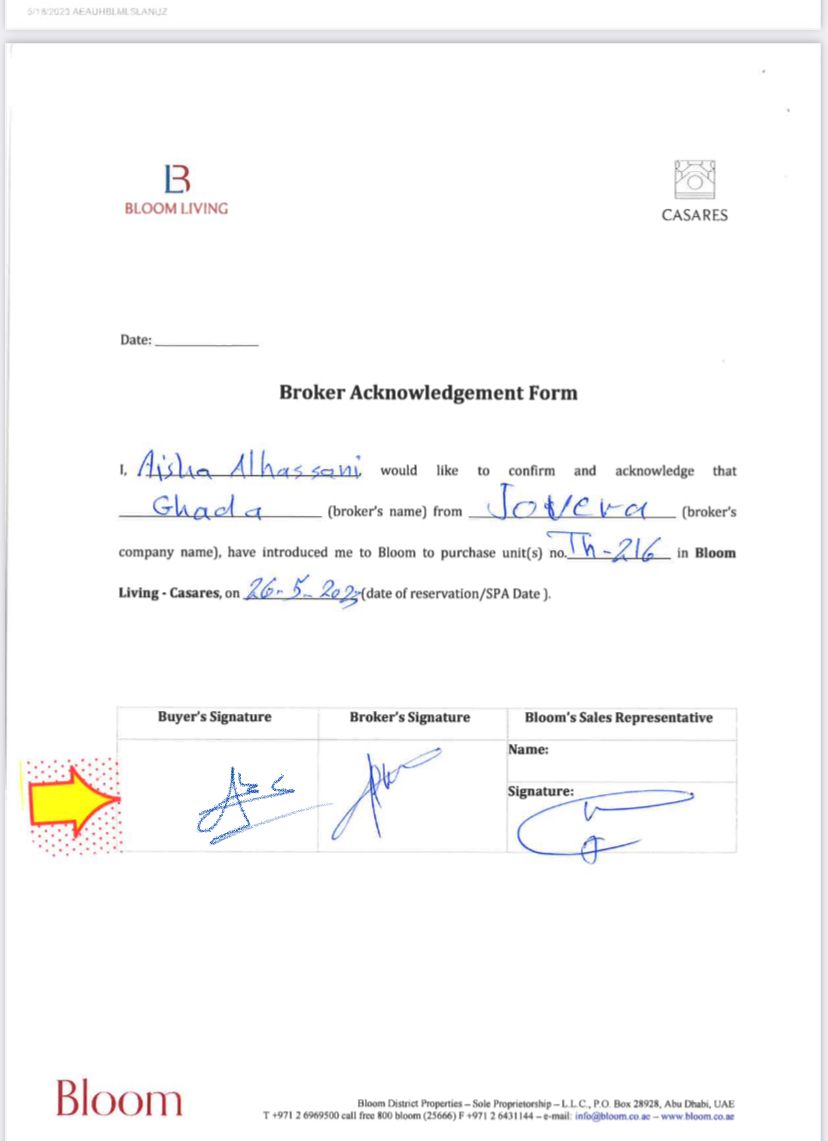 5/18/2023 AEAUHBLMLSLANUZ
BLOOM LIVING
CASARES
Date:
Broker Acknowledgement Form
I, Aisha Alhassani would like to confirm and acknowledge that
Ghada (broker's name) from Jovera (broker's
company name), have introduced me to Bloom to purchase unit(s) no. Th-216 in Bloom
Living - Casares, on 26-5-2023 (date of reservation/SPA Date ).
Buyer's Signature Broker's Signature Bloom's Sales Representative
Name:
Signature:
Bloom
Bloom District Properties – Sole Proprietorship – L.L.C., P.O. Box 28928, Abu Dhabi, UAE
T +971 2 6969500 call free 800 bloom (25666) F +971 2 6431144 – e-mail: info@bloom.co.ae – www.bloom.co.ae